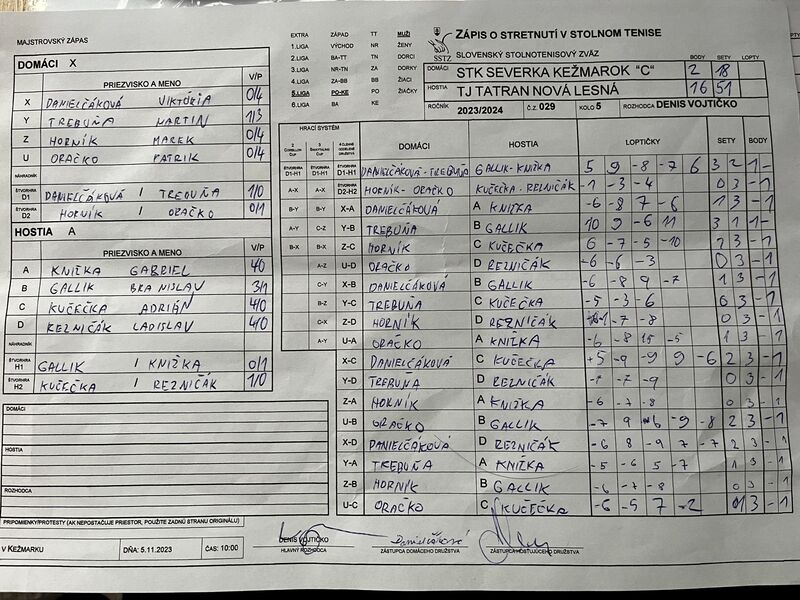 MAJSTROVSKÝ ZÁPAS
DOMÁCI X
PRIEZVISKO A MENO V/P
X DANIELČÁKOVÁ VIKTÓRIA 0/4
Y TREBUŇA MARTIN 1/3
Z HORNÍK MAREK 0/4
U ORAČKO PATRIK 0/4
NÁHRADNÍK
ŠTVORHRA D1 DANIELČÁKOVÁ / TREBUŇA 1/0
ŠTVORHRA D2 HORNÍK / ORAČKO 0/1
HOSTIA A
PRIEZVISKO A MENO V/P
A KNIŽKA GABRIEL 4/0
B GALLIK BRANISLAV 3/1
C KUČEČKA ADRIÁN 4/0
D REZNIČÁK LADISLAV 4/0
NÁHRADNÍK
ŠTVORHRA H1 GALLIK / KNIŽKA 0/1
ŠTVORHRA H2 KUČEČKA / REZNIČÁK 1/0
DOMÁCI
HOSTIA
ROZHODCA
PRIPOMIENKY/PROTESTY (AK NEPOSTAČUJE PRIESTOR, POUŽITE ZADNÚ STRANU ORIGINÁLU)
V KEŽMARKU DŇA: 5.11.2023 ČAS: 10:00
DENIS VOJTIČKO
HLAVNÝ ROZHODCA
Danielčáková
ZÁSTUPCA DOMÁCEHO DRUŽSTVA
ZÁSTUPCA HOSŤUJÚCEHO DRUŽSTVA
EXTRA ZÁPAD TT MUŽI
1.LIGA VÝCHOD NR ŽENY
2.LIGA BA-TT TN DORCI
3.LIGA NR-TN ZA DORKY
4.LIGA ZA-BB BB ŽIACI
5.LIGA PO-KE PO ŽIAČKY
6.LIGA BA KE
SSTZ
ZÁPIS O STRETNUTÍ V STOLNOM TENISE
SLOVENSKÝ STOLNOTENISOVÝ ZVÄZ
BODY SETY LOPTY
DOMÁCI STK SEVERKA KEŽMAROK "C" 2 18
HOSTIA TJ TATRAN NOVÁ LESNÁ 16 51
ROČNÍK 2023/2024 Č.Z. 029 KOLO 5 ROZHODCA DENIS VOJTIČKO
HRACÍ SYSTÉM
DOMÁCI HOSTIA LOPTIČKY SETY BODY
D1-H1 D1-H1 ŠTVORHRA D1-H1 DANIELČÁKOVÁ-TREBUŇA GALLIK-KNIŽKA 5 9 -8 -7 6 3 2 1 -
A-X A-X ŠTVORHRA D2-H2 HORNÍK-ORAČKO KUČEČKA-REZNIČÁK -1 -3 -4 0 3 - 1
B-Y B-Y X-A DANIELČÁKOVÁ A KNIŽKA -6 -8 7 -6 1 3 - 1
A-Y C-Z Y-B TREBUŇA B GALLIK 10 9 -6 11 3 1 1 -
B-X B-X Z-C HORNÍK C KUČEČKA 6 -7 -5 -10 1 3 - 1
A-Z U-D ORAČKO D REZNIČÁK -6 -6 -3 0 3 - 1
C-Y X-B DANIELČÁKOVÁ B GALLIK -6 -8 9 -7 1 3 - 1
B-Z Y-C TREBUŇA C KUČEČKA -5 -3 -6 0 3 - 1
C-X Z-D HORNÍK D REZNIČÁK -7 -8 0 3 - 1
A-Y U-A ORAČKO A KNIŽKA -6 -8 15 -5 1 3 - 1
X-C DANIELČÁKOVÁ C KUČEČKA +5 -9 -9 9 -6 2 3 - 1
Y-D TREBUŇA D REZNIČÁK -7 -9 0 3 - 1
Z-A HORNÍK A KNIŽKA -6 -7 -8 0 3 - 1
U-B ORAČKO B GALLIK -7 9 -6 -9 -8 2 3 - 1
X-D DANIELČÁKOVÁ D REZNIČÁK -6 8 -9 7 -7 2 3 - 1
Y-A TREBUŇA A KNIŽKA -5 -6 5 -7 1 3 - 1
Z-B HORNÍK B GALLIK -6 -7 -8 0 3 - 1
U-C ORAČKO C KUČEČKA -6 -5 7 -2 3 - 1